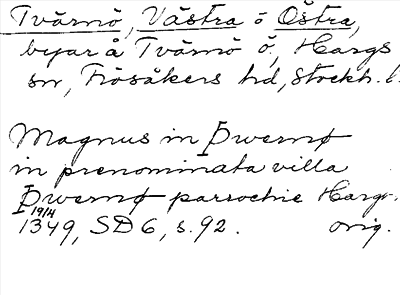 Tvärnö, Västra o Östra,
byar å Tvärnö ö, Hargs
sn, Frösåkers hd, Stockh. l.
Magnus in Þwernø
in prenominata villa
Þwernø parrochie Hargx.
19/4
1349, SD 6, s. 92. orig.